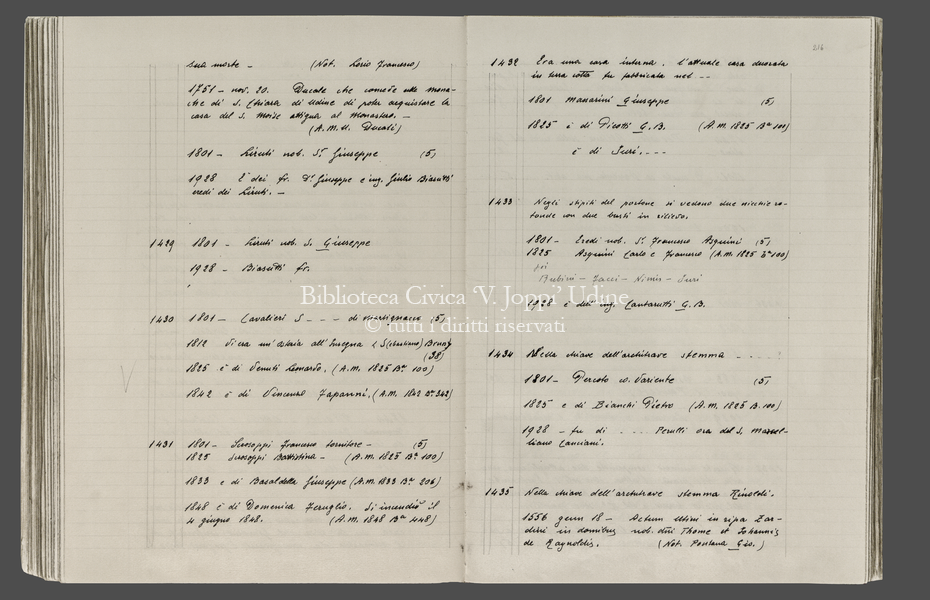 sua morte - (Not. Losio Francesco)
1751 - nov. 20. Ducale che concede alle mona-
che di S. Chiara di Udine di poter acquistare la
casa del S. Moisè attigua al Monastero. -
(A.M.U. Ducali)
1801 - Liruti nob. Sr Giuseppe (5)
1928 È dei fr. Dr Giuseppe e ing. Giulio Biasutti
eredi dei Liruti. -
1429 1801 - Liruti nob. S. Giuseppe
1928 - Biasutti fr.
1430 1801 - Cavalieri S - - - di Martignacco (5)
1812 Vi era un'osteria all'Insegna
(38)
1825 è di Venuti Leonardo. (A.M. 1825 Ba 100)
1842 è di Vincenzo Zapanni. (A.M. 1842 Ba 342)
1431 1801 - Serosoppi Francesco tornitore - (5)
1825 Serosoppi Battistina - (A.M. 1825 Ba 100)
1833 è di Basaldella Giuseppe (A.M. 1833 Ba 206)
1848 è di Domenica Feruglio. Si incendiò il
4 giugno 1848. (A.M. 1848 Ba 448)
216
1432 Era una casa interna. L'attuale casa decorata
in terra cotta fu fabbricata nel - -
1801 Manarini Giuseppe (5)
1825 è di Picotti G.B. (A.M. 1825 Ba 100)
è di Suri. - - -
1433 Negli stipiti del portone si vedono due nicchie ro-
tonde con due busti in rilievo.
1801 - Eredi nob. Sr Francesco Asquini (5)
1825 Asquini Carlo e Francesco (A.M. 1825 Ba 100)
poi
Rubini - Zacci - Nimis - Suri
1928 è dell'ing. Cantarutti G.B.
1434 Nella chiave dell'architrave stemma - - - -
1801 - Percoto co. Variente (5)
1825 è di Bianchi Pietro (A.M. 1825 B. 100)
1928 - fu di - - - - Perulli ora del S. Marcel-
liano Canciani.
1435 Nella chiave dell'architrave stemma Rinoldi.
1556 genn 18 - Actum Utini in ripa Zar-
dini in domibus nob. dni Thome et Johannis
de Raynoldis. (Not. Fontana Gio.)
Biblioteca Civica 'V. Joppi' Udine
© tutti i diritti riservati